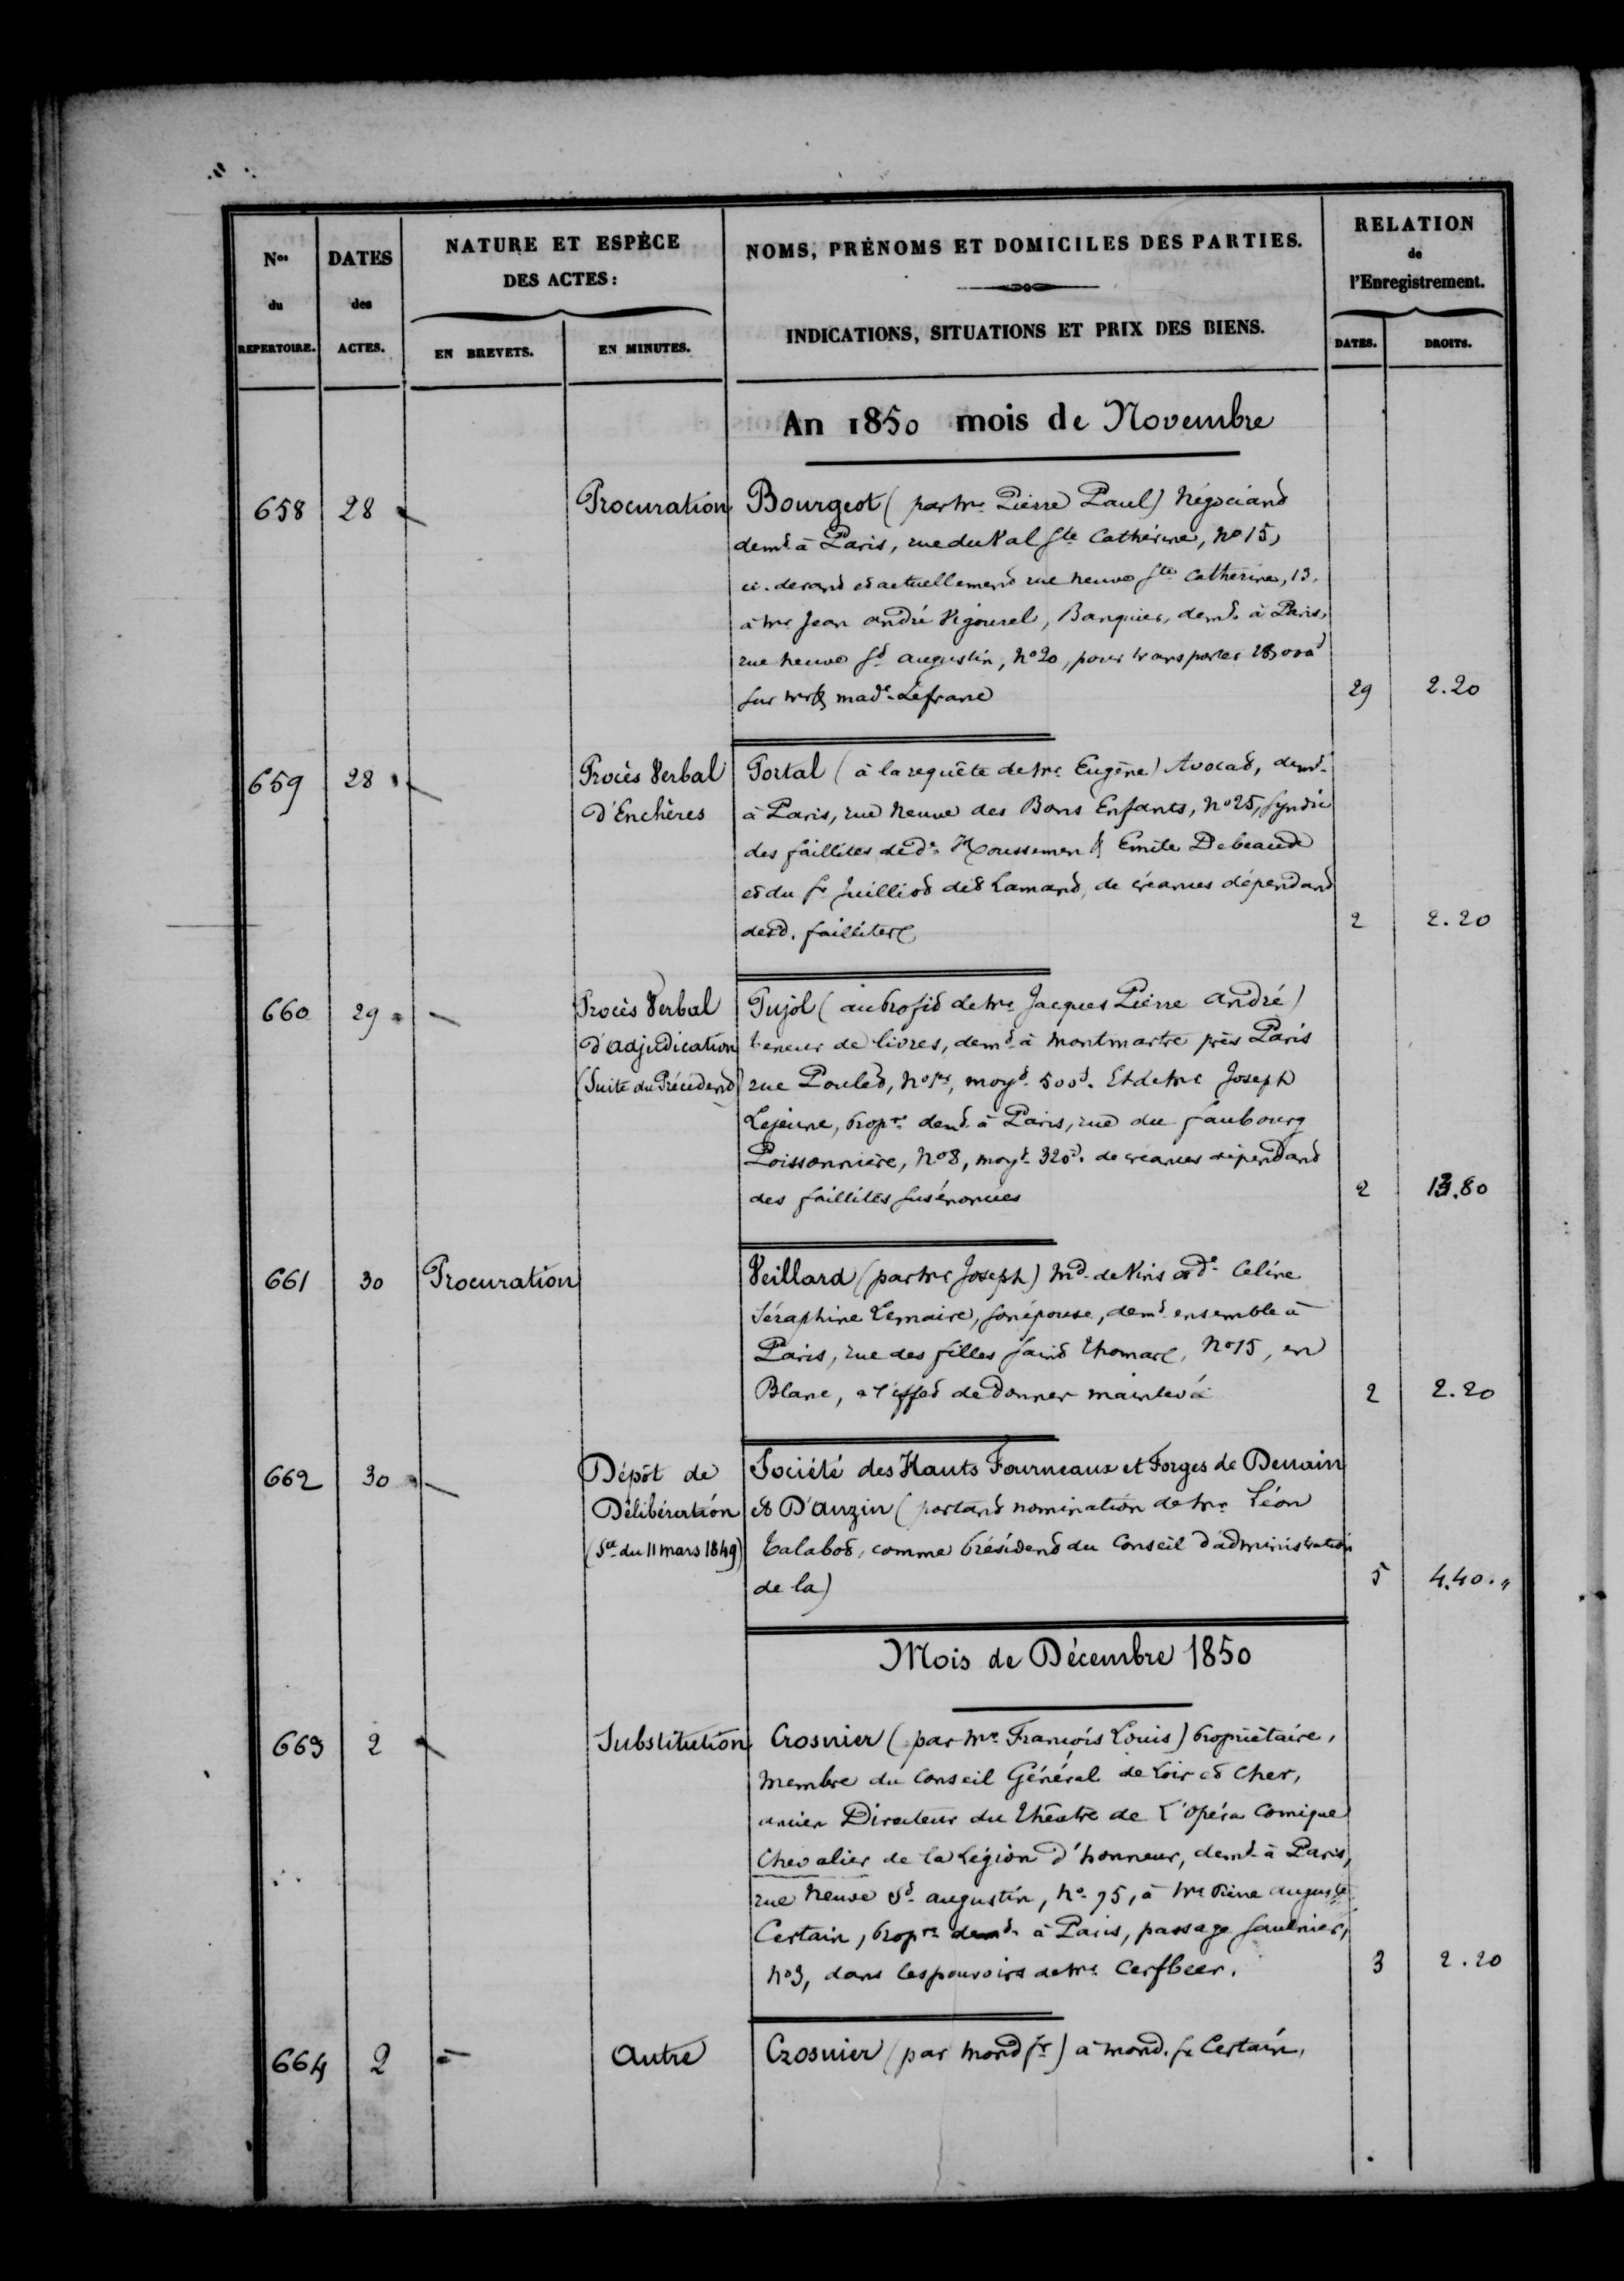 Nos
du
REPERTOIRE.
DATES
des
ACTES.
NATURE ET ESPÈCE
DES ACTES:
EN BREVETS.
EN MINUTES.
NOMS, PRÉNOMS ET DOMICILES DES PARTIES.
INDICATIONS, SITUATIONS ET PRIX DES BIENS.
RELATION
de
l'Enregistrement.
DATES.
DROITS.
An 1850 mois de Novembre
658 28 Procuration Bourgeot (par Mr. Pierre Paul) Négociant
demt. à Paris, rue du Val Ste Catherine, No 15,
ci-devant et actuellement rue neuve Ste Catherine, 13.
à Mr. Jean André Vigourel, Banquier, demt. à Paris,
rue neuve St. augustin, No 20, pour transporter
sur Mr & made. Lefranc 29 2.20
659 28 Procès Verbal Portal (à la requête de Mr. Eugène) Avocat, demt.
d'Enchères à Paris, rue neuve des Bons Enfants, No 25, Syndic
des faillites de de. Houssemen & Emile Debeaude
et du Sr Juilliot dit Lamand, de créances dépendant
desd. faillites 2 2.20
660 29 Procès Verbal Pujol (au profit de Mr. Jacques Pierre André)
d'adjudication teneur de livres, demt. à Montmartre près Paris
(Suite du Précédent) rue Poulet, No 1er, moyt. 500f. Et de Mr. Joseph
Lejeune, propre. demt. à Paris, rue du faubourg
Poissonnière, No 8, moyt. 320f. de créances dépendant
des faillites susénoncées 2 13.80
661 30 Procuration Veillard (par Mr. Joseph) Md. de Vins et de. Celine
Séraphine Lemaire, son épouse, demt. ensemble à
Paris, rue des filles Saint Thomas, No 15, en
Blanc, à l'effet de donner mainlevée 2 2.20
662 30 Dépôt de Société des Hauts Fourneaux et Forges de Denain
Délibération et D'Anzin (portant nomination de Mr. Léon
(Se. du 11 mars 1849) Talabot, comme Président du Conseil d'administration
de la) 5 4.40.
Mois de Décembre 1850
663 2 Substitution Crosnier (par Mr. François Louis) Propriétaire,
membre du Conseil Général de Loir et Cher,
ancien Directeur du Théâtre de L'Opéra Comique
Chevalier de la Légion d'honneur, demt. à Paris,
rue neuve St. augustin, No. 75, à Mr. Pierre auguste
Certain, propre. demt. à Paris, passage Saulnier,
No 3, dans les pouvoirs de Mr. Cerfbeer. 3 2.20
664 2 Autre Crosnier (par mond. Sr.) à mond. Sr. Certain,